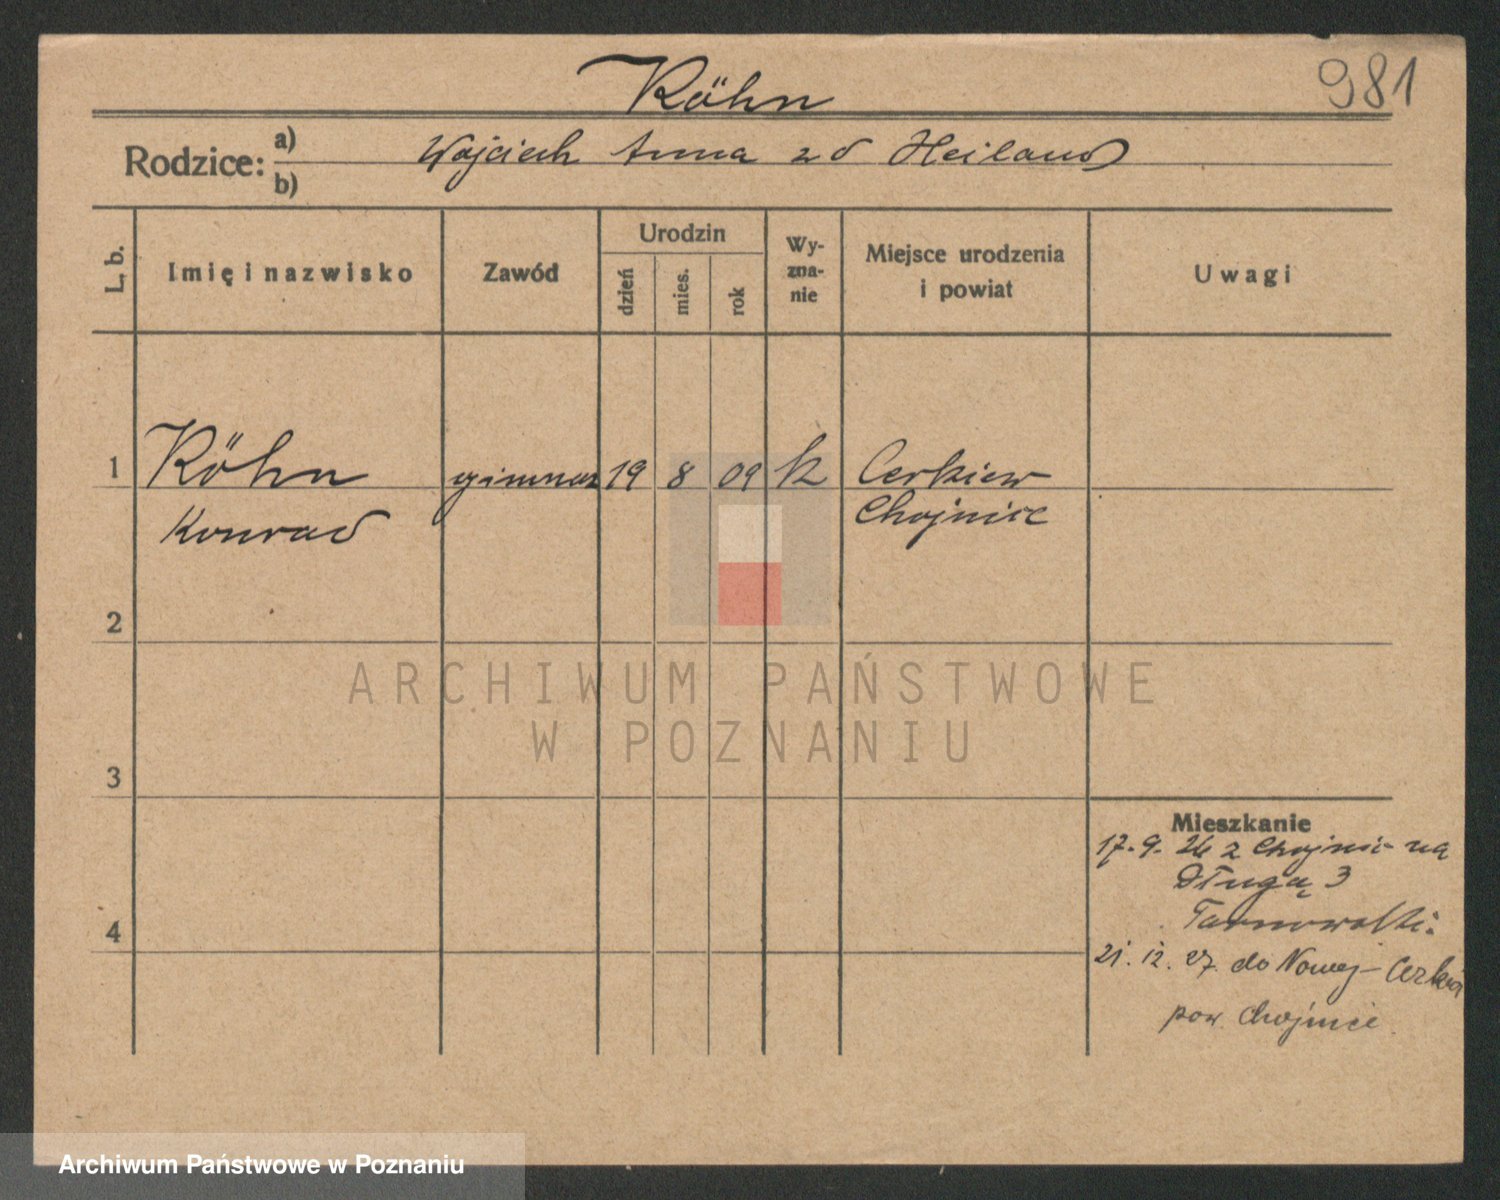 981
Röhn
Rodzice: a) Wojciech Anna z d Heiland
b)
L. b.
Imię i nazwisko
Zawód
Urodzin
dzień
mies.
rok
Wy-
zna-
nie
Miejsce urodzenia
i powiat
Uwagi
1 Röhn gimnaz 19 8 09 k Cerkiew
Konrad Chojnice
2
3
4
Mieszkanie
17.9.26 z Chojnic na
Długą 3
21.12.27. do Nowej-Cerkwi
pow. Chojnice.
ARCHIWUM PAŃSTWOWE
W POZNANIU
Archiwum Państwowe w Poznaniu